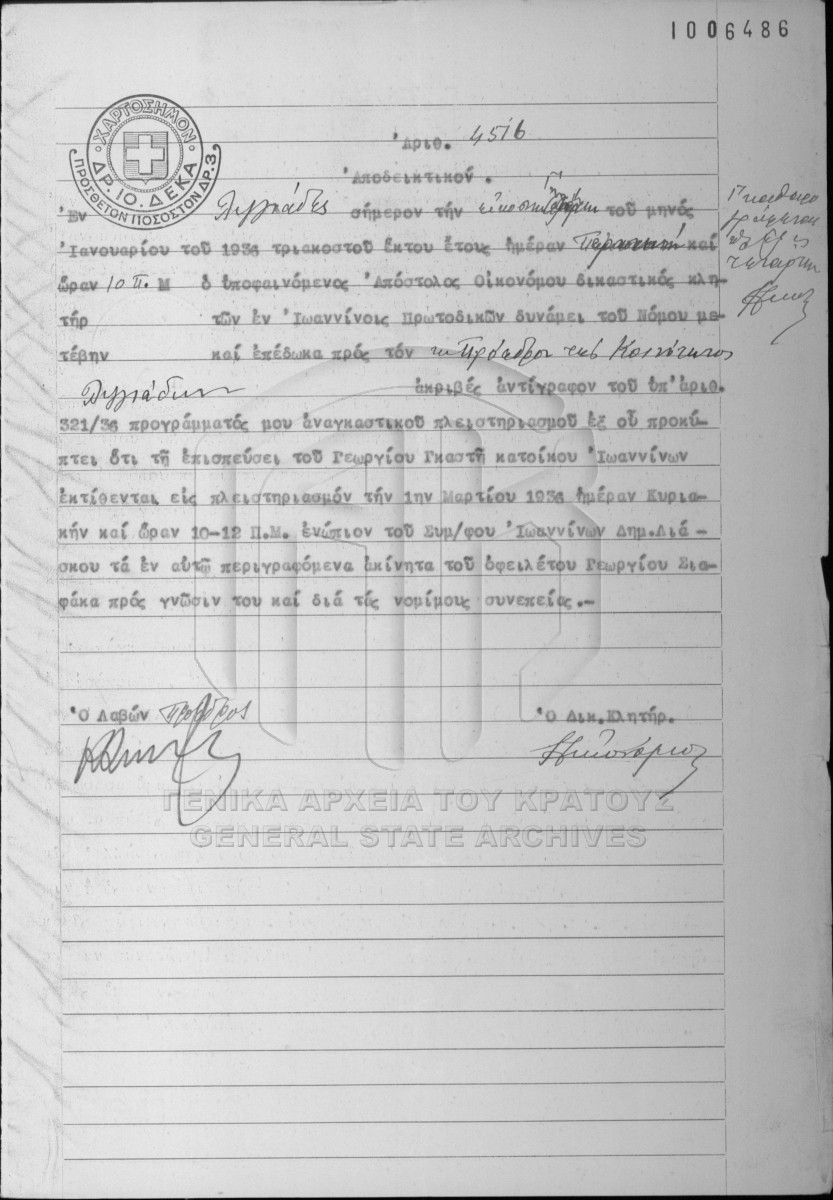 1006486
ΧΑΡΤΟΣΗΜΟΝ
ΔΡ. 10. ΔΕΚΑ
ΠΡΟΣΘΕΤΟΝ ΠΟΣΟΣΤΟΝ ΔΡ. 3
Ἀριθ. 4516
Ἀποδεικτικόν.
Ἐν Λιγγιάδες σήμερον τήν τοῦ μηνός
Ἰανουαρίου τοῦ 1936 τριακοστοῦ ἕκτου ἔτους ἡμέραν καί
ὥραν 10 Π.Μ ὁ ὑποφαινόμενος Ἀπόστολος Οἰκονόμου δικαστικός κλη-
τήρ τῶν ἐν Ἰωαννίνοις Πρωτοδικῶν δυνάμει τοῦ Νόμου με-
τέβην καί ἐπέδωκα πρός τόν Πρόεδρον τῆς Κοινότητος
Λιγγιάδων ἀκριβές ἀντίγραφον τοῦ ὑπ' ἀριθ.
321/36 προγράμματός μου ἀναγκαστικοῦ πλειστηριασμοῦ ἐξ οὗ προκύ-
πτει ὅτι τῇ ἐπισπεύσει τοῦ Γεωργίου Γκαστῆ κατοίκου Ἰωαννίνων
ἐκτίθενται εἰς πλειστηριασμόν τήν 1ην Μαρτίου 1936 ἡμέραν Κυρια-
κήν καί ὥραν 10-12 Π.Μ. ἐνώπιον τοῦ Συμ/φου Ἰωαννίνων Δημ.Διά-
σκου τά ἐν αὐτῷ περιγραφόμενα ἀκίνητα τοῦ ὀφειλέτου Γεωργίου Σια-
φάκα πρός γνῶσιν του καί διά τάς νομίμους συνεπείας.-
Ὁ Λαβών Πρόεδρος
Ὁ Δικ.Κλητήρ.
ΓΕΝΙΚΑ ΑΡΧΕΙΑ ΤΟΥ ΚΡΑΤΟΥΣ
GENERAL STATE ARCHIVES